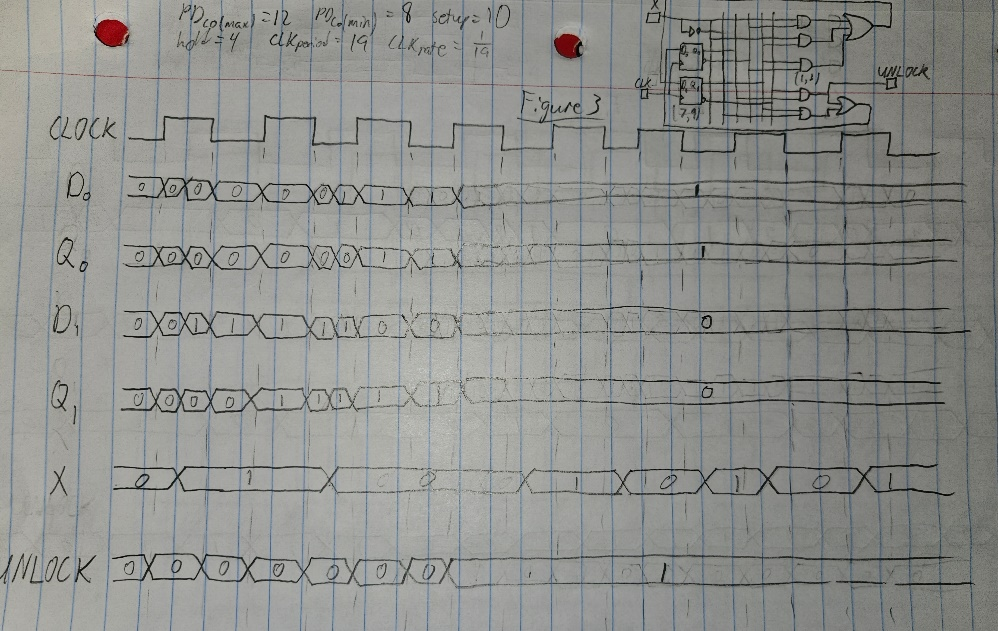 PDco(max) = 12 PDco(min) = 8 setup = 10
hold = 4 CLKperiod = 19 CLKrate = 1/19
X
CLK
(1,2)
[7,9]
UNLOCK
Figure 3
CLOCK
D0 0 0 0 0 0 0 1 1 1 1
Q0 0 0 0 0 0 0 0 1 1 1
D1 0 0 1 1 1 1 1 0 0 0
Q1 0 0 0 0 1 1 1 1 1 0
X 0 1 0 1 0 1 0 1
UNLOCK 0 0 0 0 0 0 0 1